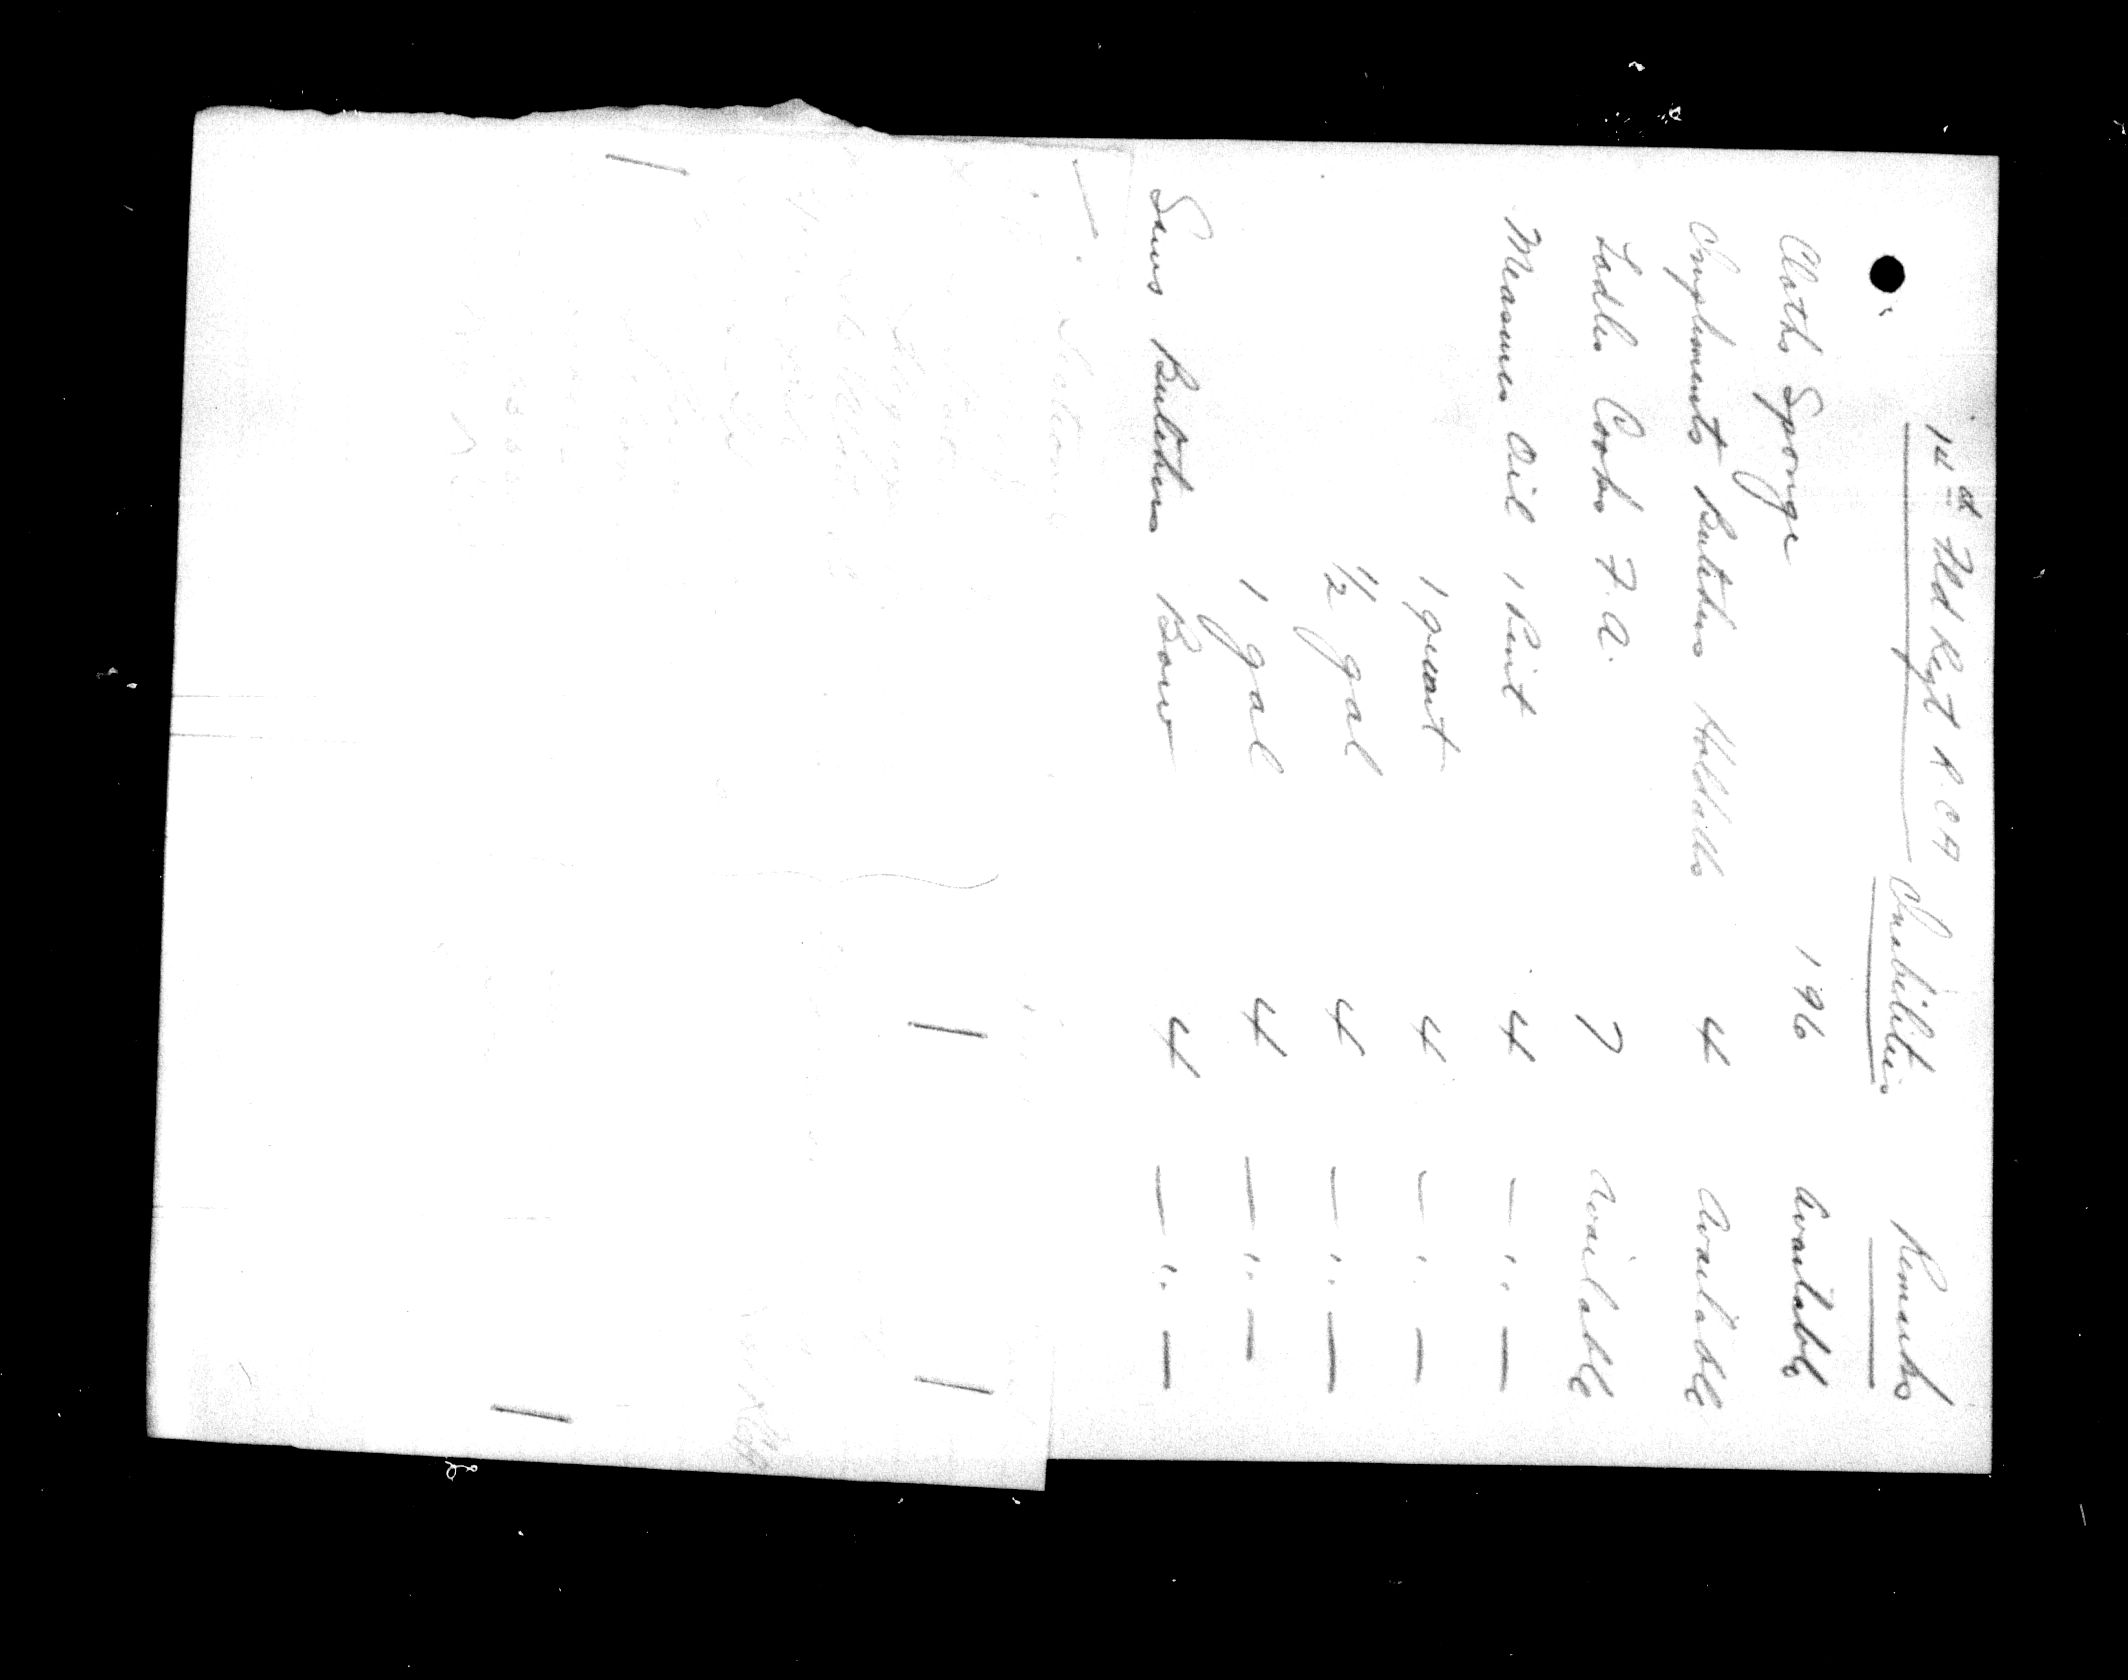 14th Fld Regt RCA Inabilities Remarks
Cloths Sponge 196 Available
Implements Butchers Holdalls 4 Available
Ladles Cooks F.A. 7 Available
Measures Oil 1 Pint 4 — " —
1 quart 4 — " —
1/2 gal 4 — " —
1 gal 4 — " —
Saws Butchers Bow 4 — " —